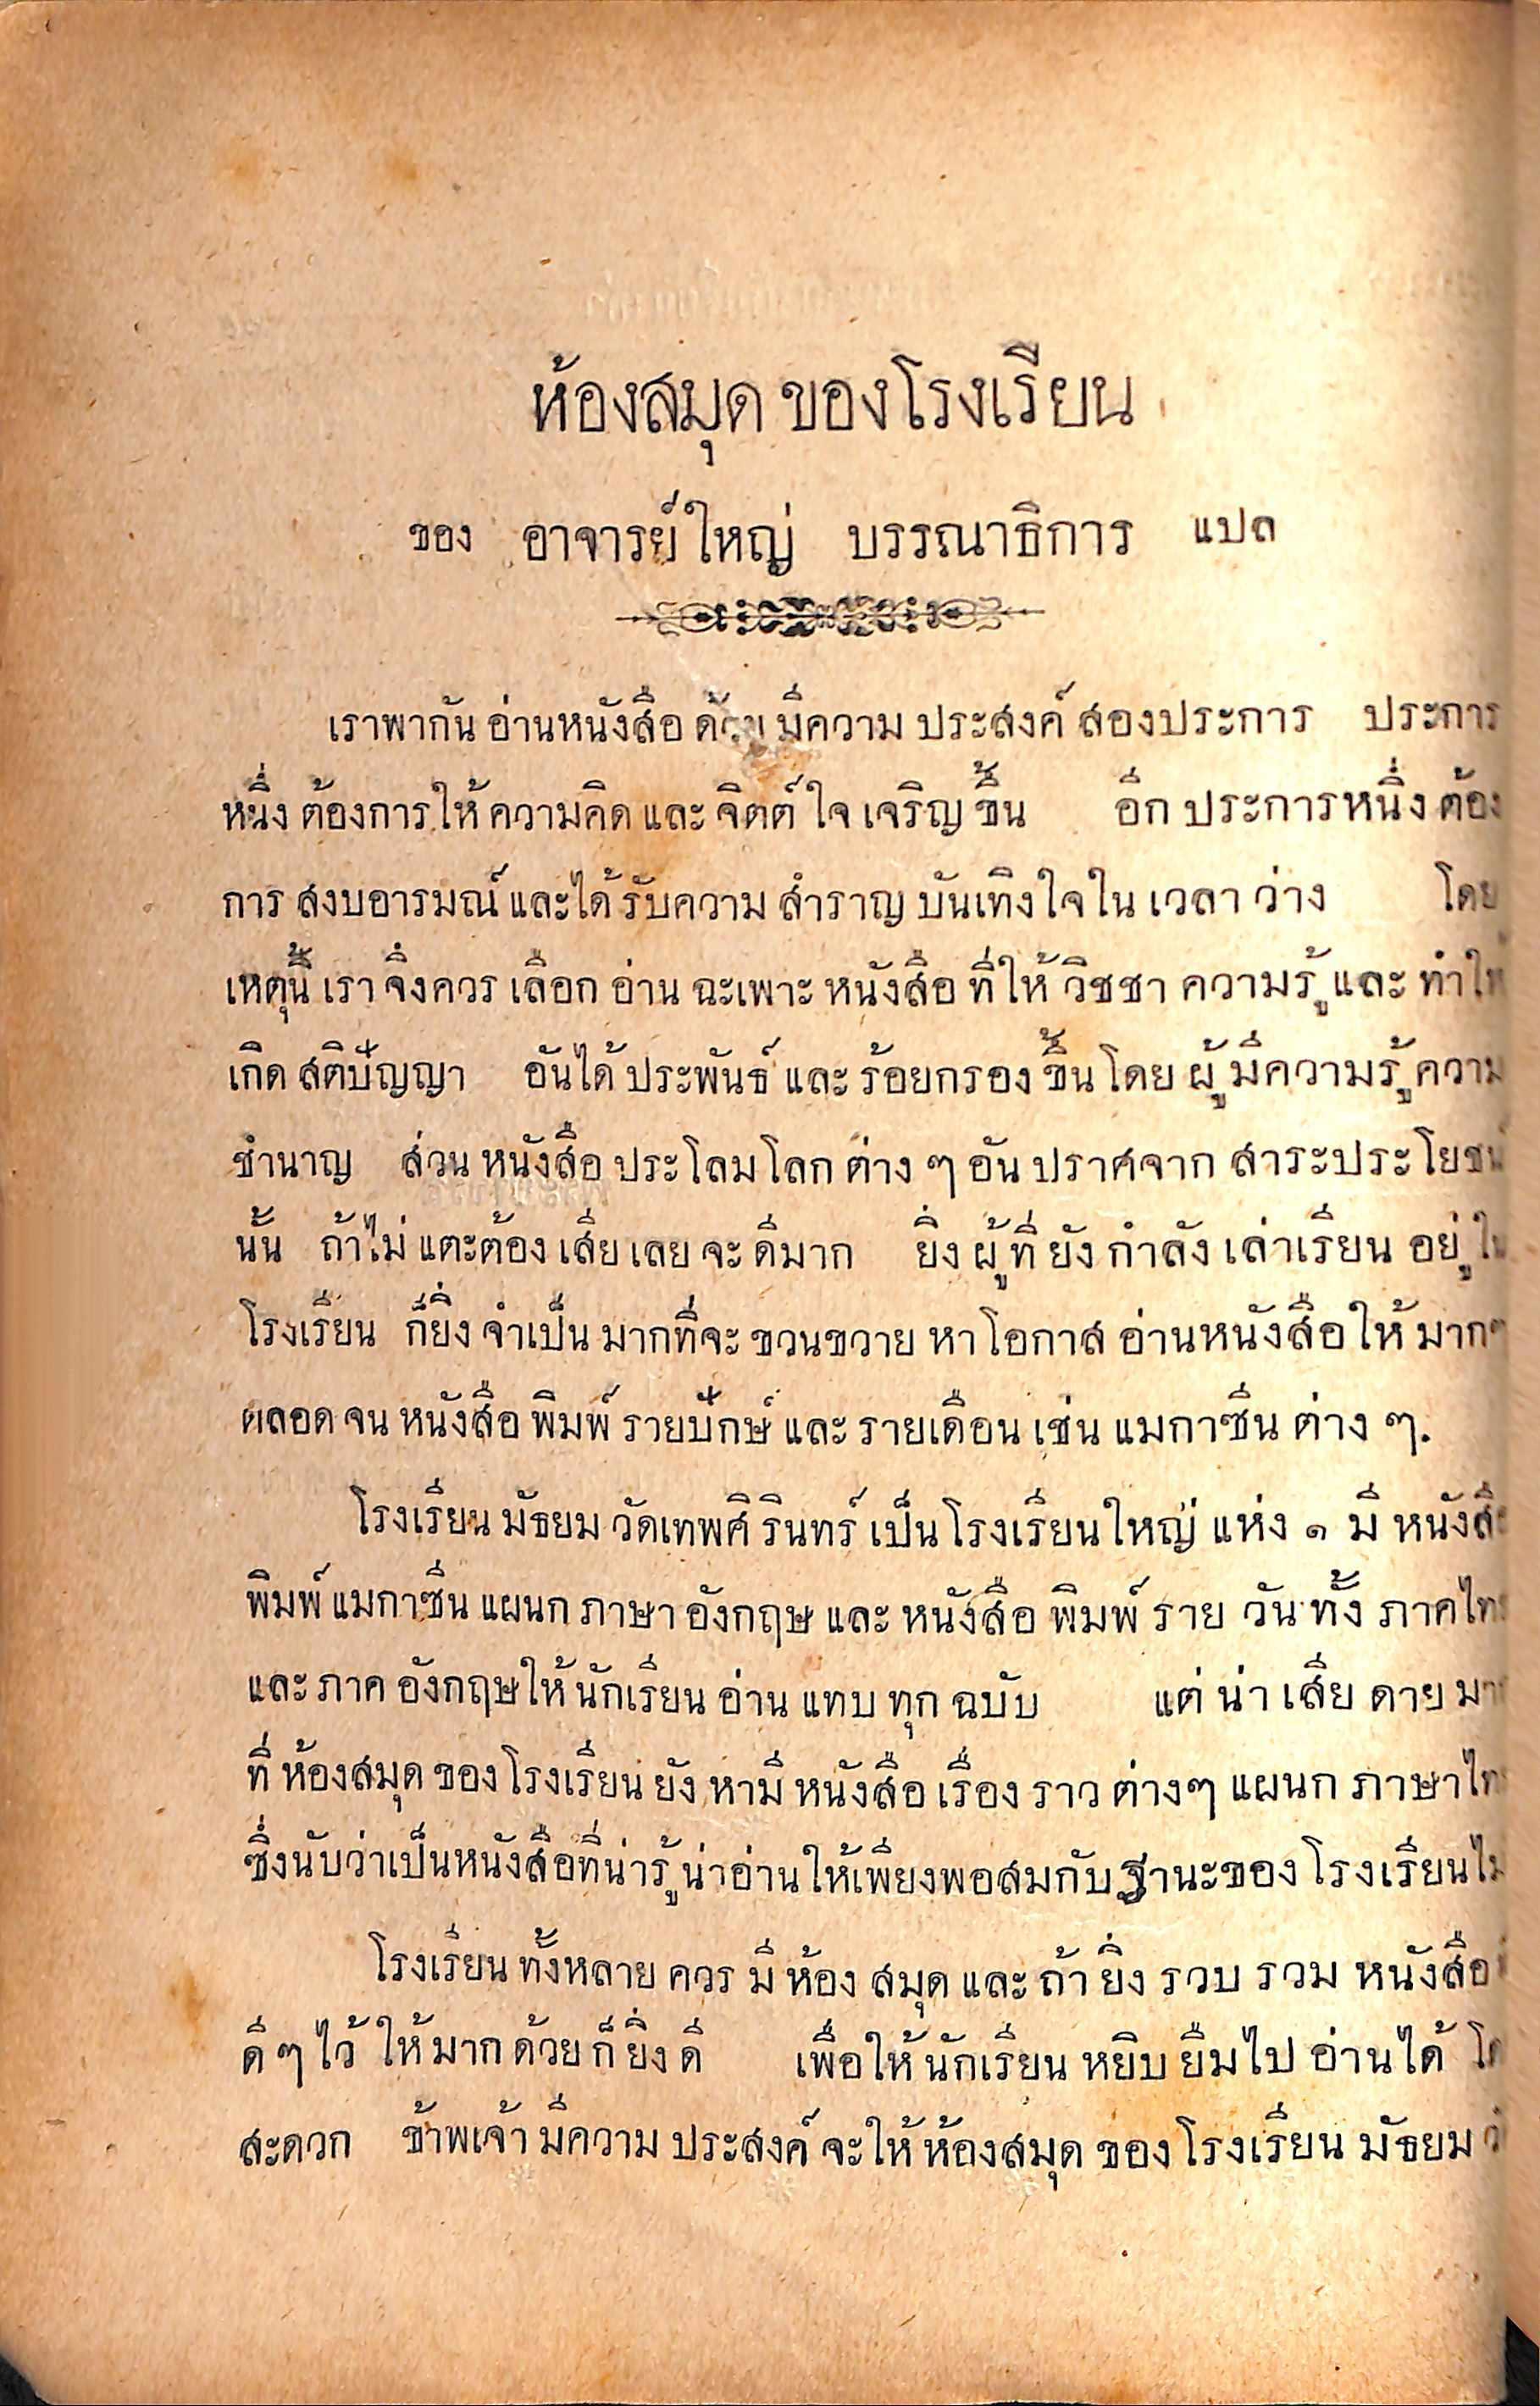 ห้องสมุด ของโรงเรียน
ของ อาจารย์ใหญ่ บรรณาธิการ แปล
เราพากัน อ่านหนังสือ ด้วย มีความ ประสงค์ สองประการ ประการ
หนึ่ง ต้องการ ให้ ความคิด และ จิตต์ ใจ เจริญ ขึ้น อีก ประการหนึ่ง ต้อง
การ สงบอารมณ์ และได้ รับความ สำราญ บันเทิง ใจ ใน เวลา ว่าง โดย
เหตุนี้ เรา จึงควร เลือก อ่าน ฉะเพาะ หนังสือ ที่ให้ วิชชา ความรู้ และ ทำให้
เกิด สติปัญญา อันได้ ประพันธ์ และ ร้อยกรอง ขึ้น โดย ผู้ มีความรู้ ความ
ชำนาญ ส่วน หนังสือ ประโลม โลก ต่าง ๆ อัน ปราศจาก สาระประโยชน์
นั้น ถ้าไม่ แตะต้อง เสีย เลย จะ ดีมาก ยิ่ง ผู้ ที่ ยัง กำลัง เล่าเรียน อยู่ ใน
โรงเรียน ก็ยิ่ง จำเป็น มากที่จะ ขวนขวาย หา โอกาส อ่านหนังสือ ให้ มากๆ
ตลอด จน หนังสือ พิมพ์ รายปักษ์ และ รายเดือน เช่น แมกาซีน ต่าง ๆ.
โรงเรียน มัธยม วัดเทพศิ รินทร์ เป็น โรงเรียน ใหญ่ แห่ง ๑ มี หนังสือ
พิมพ์ แมกาซีน แผนก ภาษา อังกฤษ และ หนังสือ พิมพ์ ราย วัน ทั้ง ภาคไทย
และ ภาค อังกฤษให้ นักเรียน อ่าน แทบ ทุก ฉบับ แต่ น่า เสีย ดาย มาก
ที่ ห้องสมุด ของ โรงเรียน ยัง หามี หนังสือ เรื่อง ราว ต่างๆ แผนก ภาษาไทย
ซึ่งนับว่าเป็นหนังสือที่น่ารู้ น่าอ่านให้เพียงพอสมกับ ฐานะของ โรงเรียนไม่
โรงเรียน ทั้งหลาย ควร มี ห้อง สมุด และ ถ้า ยิ่ง รวบ รวม หนังสือ
ดี ๆ ไว้ ให้ มาก ด้วย ก็ ยิ่ง ดี เพื่อให้ นักเรียน หยิบ ยืมไป อ่านได้
สะดวก ข้าพเจ้า มีความ ประสงค์ จะให้ ห้องสมุด ของ โรงเรียน มัธยม